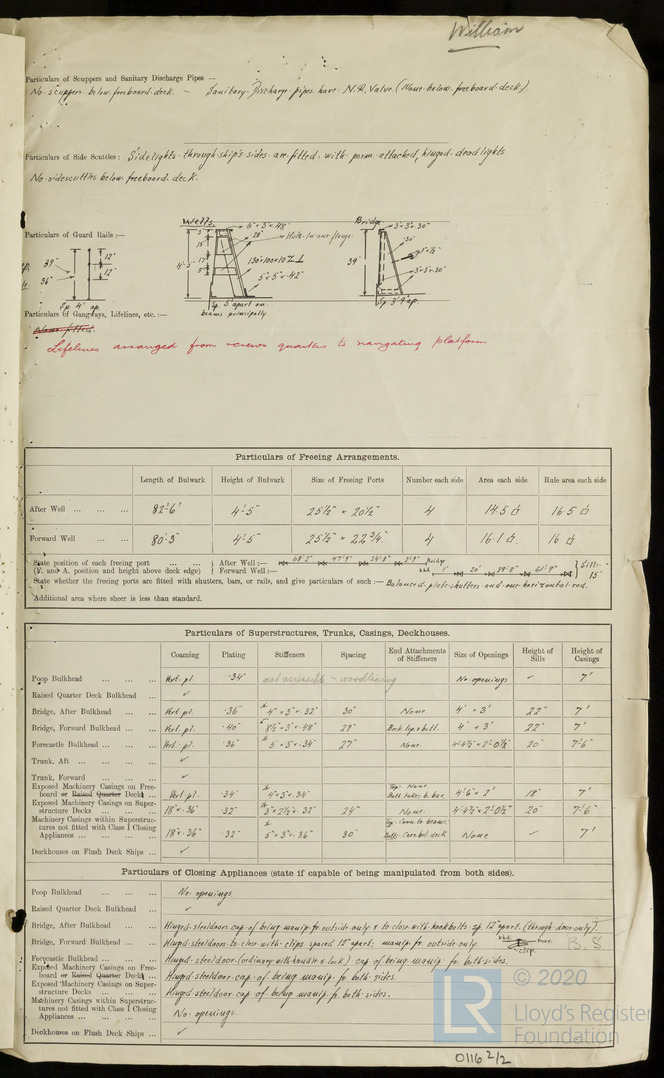 William
Particulars of Scuppers and Sanitary Discharge Pipes —
No scuppers below freeboard deck. — Sanitary Discharge pipes have N.R. Valve. (None below freeboard deck)
Particulars of Side Scuttles: Sidelights through ship's sides are fitted with perm. attached, hinged deadlights.
No sidescuttles below freeboard deck.
Particulars of Guard Rails:—
39"
36"
12"
12"
Sp. 4' ap.
Wells
6" × 3" × .48"
28"
Hole in one flange
4'-5"
130×100×10
5"×5"×.42"
Sp. 5' apart on
beams principally
Bridge
3"×3"×.30"
30"
39"
3"×3"×.30"
Sp. 3'-9" ap
Particulars of Gangways, Lifelines, etc.:—
None fitted.
Lifelines arranged from crews quarters to navigating platform
Particulars of Freeing Arrangements.
Length of Bulwark Height of Bulwark Size of Freeing Ports Number each side Area each side Rule area each side
After Well ... ... ... 82'-6" 4'-5" 25½" × 20½" 4 14.5 16.5
Forward Well ... 80'-3" 4'-5" 25½" × 22¾" 4 16.1 16
State position of each freeing port ... ... } After Well:— 68'-2" 47'-9" 24'-8" 2'-9" Bridge
(F. and A. position and height above deck edge) } Forward Well:— bhd. 1' 20' 39'-8" 61'-9" } Sill:- 15"
State whether the freeing ports are fitted with shutters, bars, or rails, and give particulars of such:— Balanced plate shutters and one horizontal rod.
Additional area where sheer is less than standard.
Particulars of Superstructures, Trunks, Casings, Deckhouses.
Coaming Plating Stiffeners Spacing End Attachments of Stiffeners Size of Openings Height of Sills Height of Casings
Poop Bulkhead ... ... ... Vert. pl. .34" not accessible – woodlining No openings ✓ 7'
Raised Quarter Deck Bulkhead ... ✓
Bridge, After Bulkhead ... ... Vert. pl. .36" 4" × 3" × .32" 30" None. 4' × 3' 22" 7'
Bridge, Forward Bulkhead ... ... Vert. pl. .40" 8½" × 3" × .48" 29" 4' × 3' 22" 7'
Forecastle Bulkhead ... ... ... Vert. pl. .36" 5" × 3" × .34" 27" None. 4'-4½" × 2'-0½" 20" 7'-6"
Trunk, Aft ... ... ... ✓
Trunk, Forward ... ... ... ✓
Exposed Machinery Casings on Free-
board or Raised Quarter Decks ... Vert. pl. .34" 4"×3"×.34" Top- None. 4'-6" × 2' 18" 7'
Exposed Machinery Casings on Super-
structure Decks ... ... ... 18"×.36" .32" 3"×2½"×.32" 24" None. 4'-4½"×2'-0½" 20" 7'-6"
Machinery Casings within Superstruc-
tures not fitted with Class 1 Closing
Appliances ... ... ... ... 18"×.36" .32" 5"×3"×.36" 30" Top- Conn. to beams. None ✓ 7'
Deckhouses on Flush Deck Ships ... ✓
Particulars of Closing Appliances (state if capable of being manipulated from both sides).
Poop Bulkhead ... ... ... No openings.
Raised Quarter Deck Bulkhead ... ✓
Bridge, After Bulkhead ... ... Hinged steeldoors cap. of being manip. fr. outside only & to close with hook bolts sp. 12" apart. (through door only).
Bridge, Forward Bulkhead ... Hinged steeldoors to close with clips spaced 12" apart; manip. fr. outside only. bhd. clip. door. B.S
Forecastle Bulkhead ... ... Hinged steeldoor (ordinary with handle & lock) cap. of being manip. fr. both sides.
Exposed Machinery Casings on Free-
board or Raised Quarter Decks ... Hinged steeldoor cap. of being manip. fr. both sides.
Exposed Machinery Casings on Super-
structure Decks ... ... ... Hinged steeldoor cap. of being manip. fr. both sides.
Machinery Casings within Superstruc-
tures not fitted with Class 1 Closing
Appliances ... ... ... ... No openings.
Deckhouses on Flush Deck Ships ... ✓
LR
© 2020
Lloyd's Register
Foundation
0116 2/2